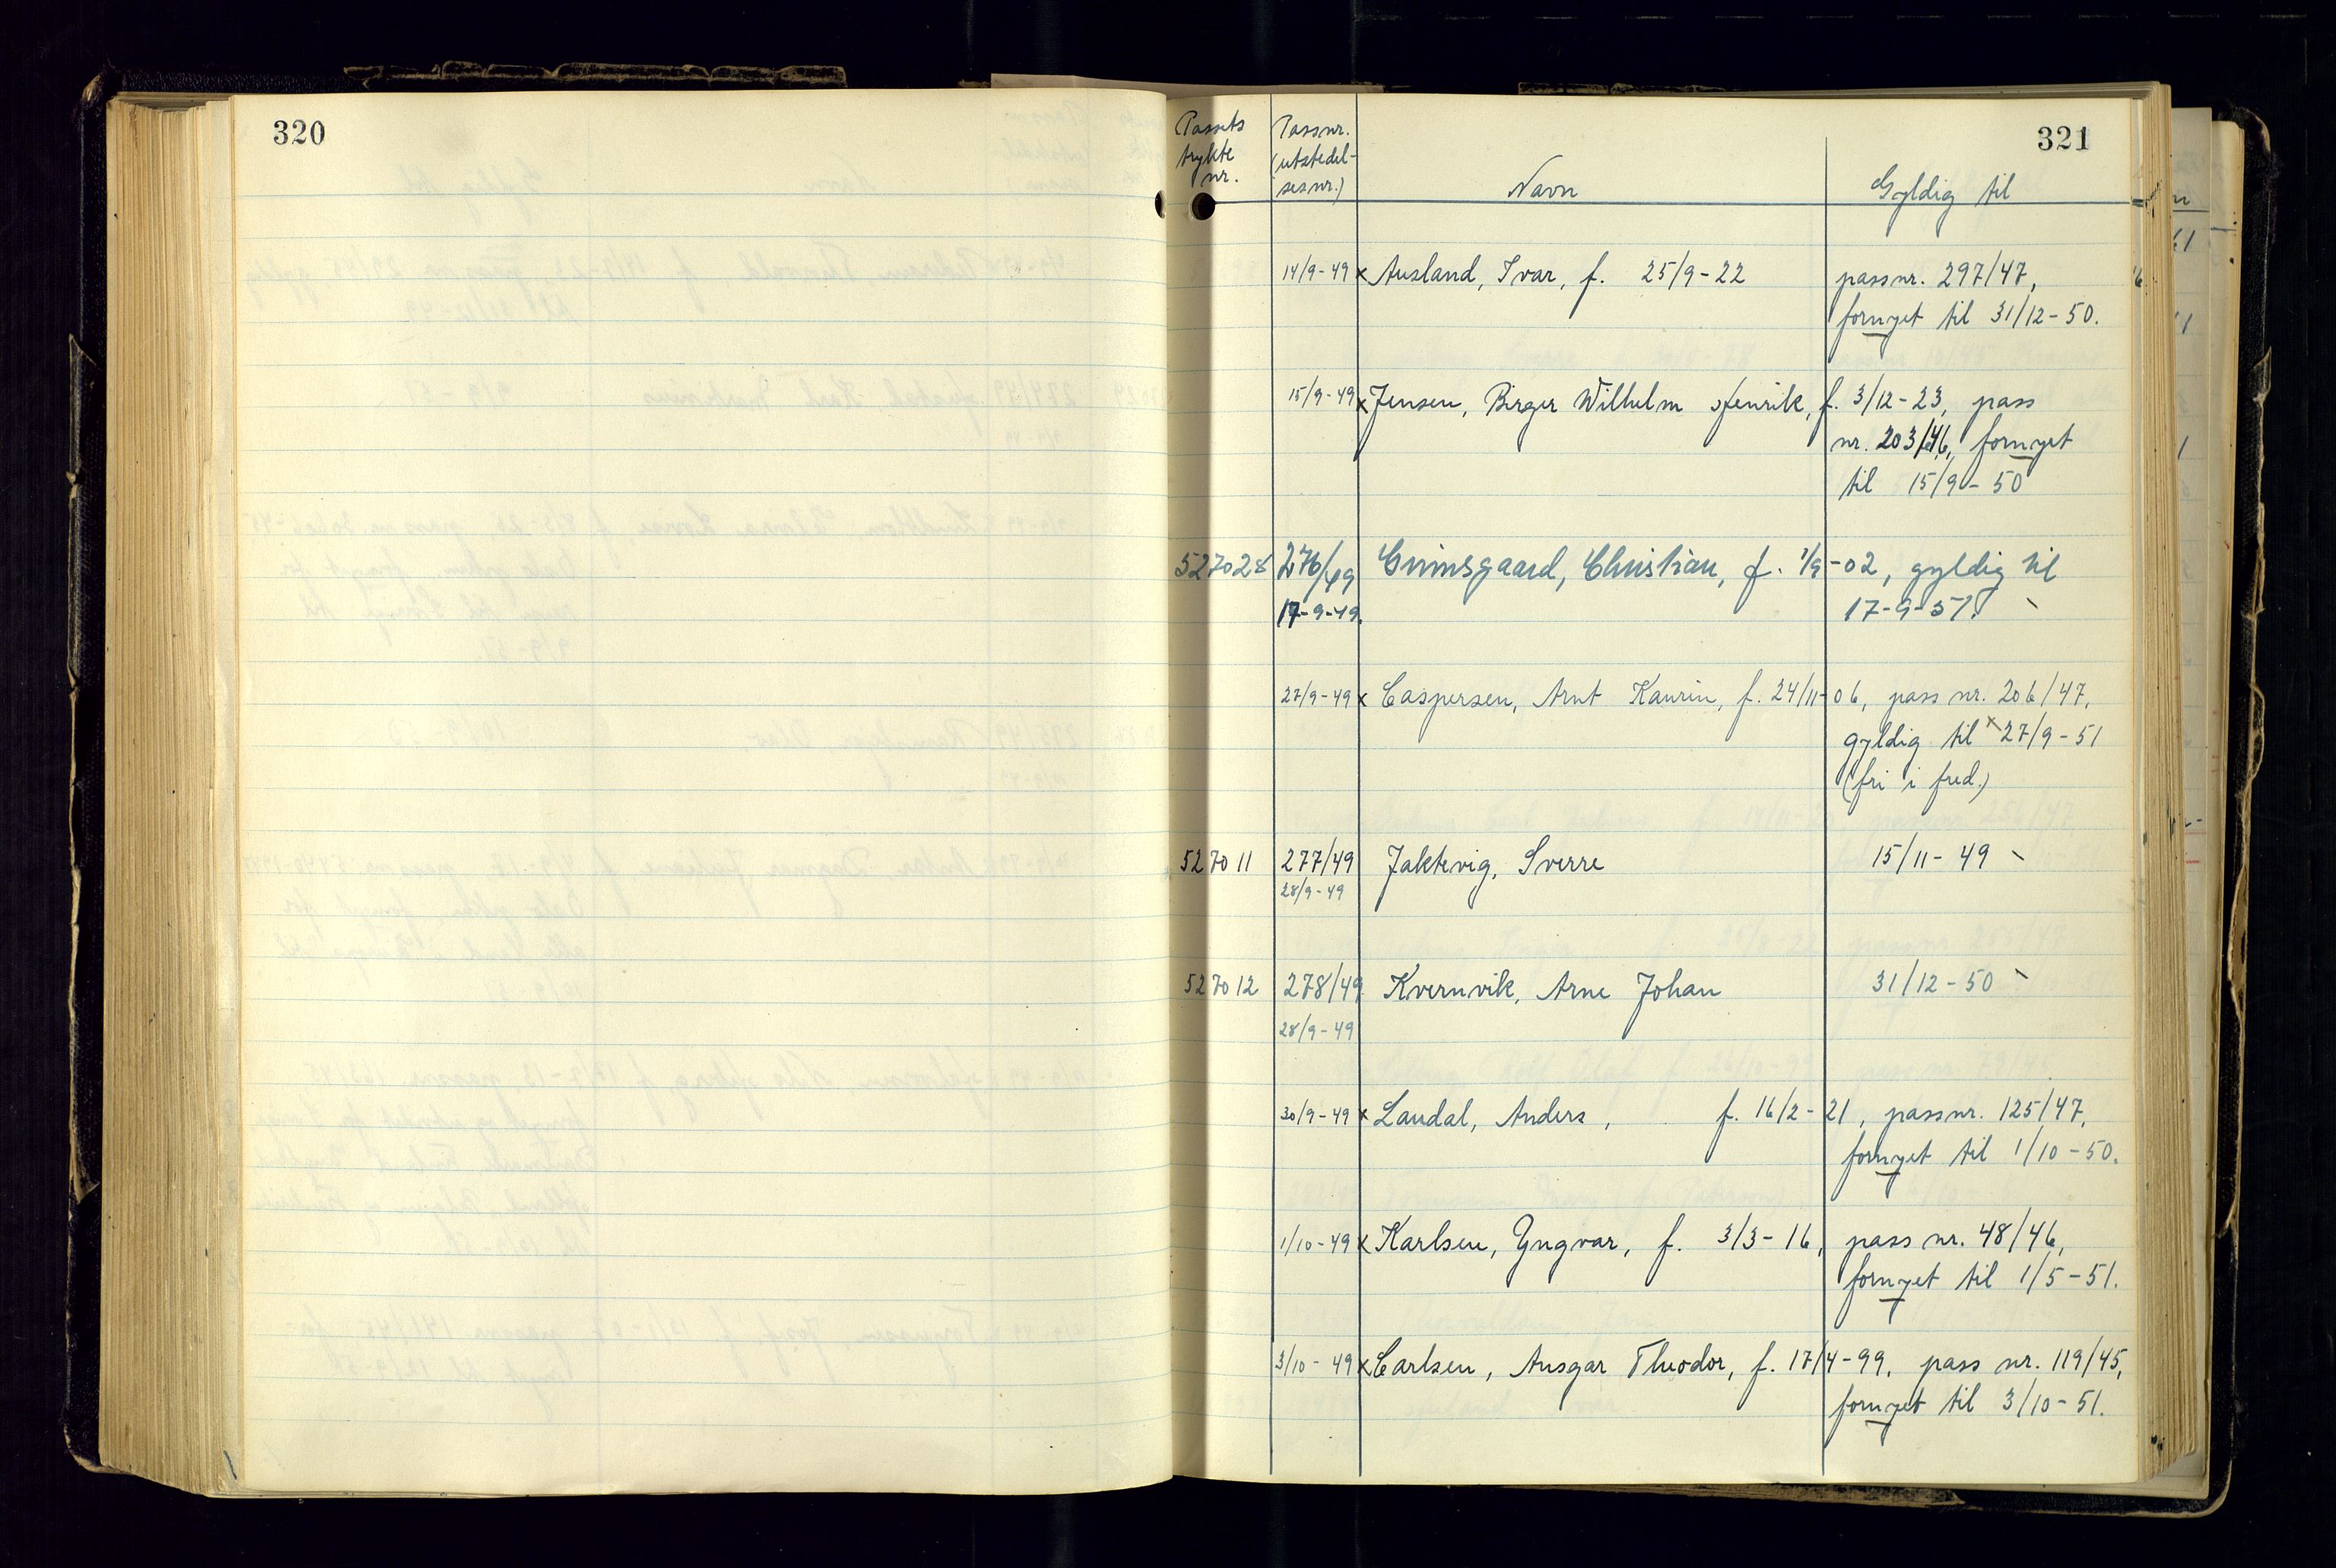 320
321
Passets trykte nr.
Passnr. (utstedel-sesnr.)
Navn
Gyldig til
14/9-49 x Ausland, Ivar, f. 25/9-22 passnr. 297/47,
fornyet til 31/12-50.
15/9-49 x Jensen, Birger Wilhelm Henrik, f. 3/12-23, pass
nr. 203/46, fornyet
til 15/9-50
527028 276/49 Grimsgaard, Christian, f. 1/9-02, gyldig til
17-9-49. 17-9-51.
27/9-49 x Caspersen, Arnt Kaurin, f. 24/11-06, pass nr. 206/47,
gyldig til x 27/9-51
(fri i fred.)
527011 277/49 Jaktevig, Sverre 15/11-49
28/9-49
527012 278/49 Kvernvik, Arne Johan 31/12-50
28/9-49
30/9-49 x Laudal, Anders, f. 16/2-21, passnr. 125/47,
fornyet til 1/10-50.
1/10-49 x Karlsen, Yngvar, f. 3/3-16, pass nr. 48/46,
fornyet til 1/5-51.
3/10-49 x Carlsen, Ansgar Theodor, f. 17/4-99, pass nr. 119/45,
fornyet til 3/10-51.